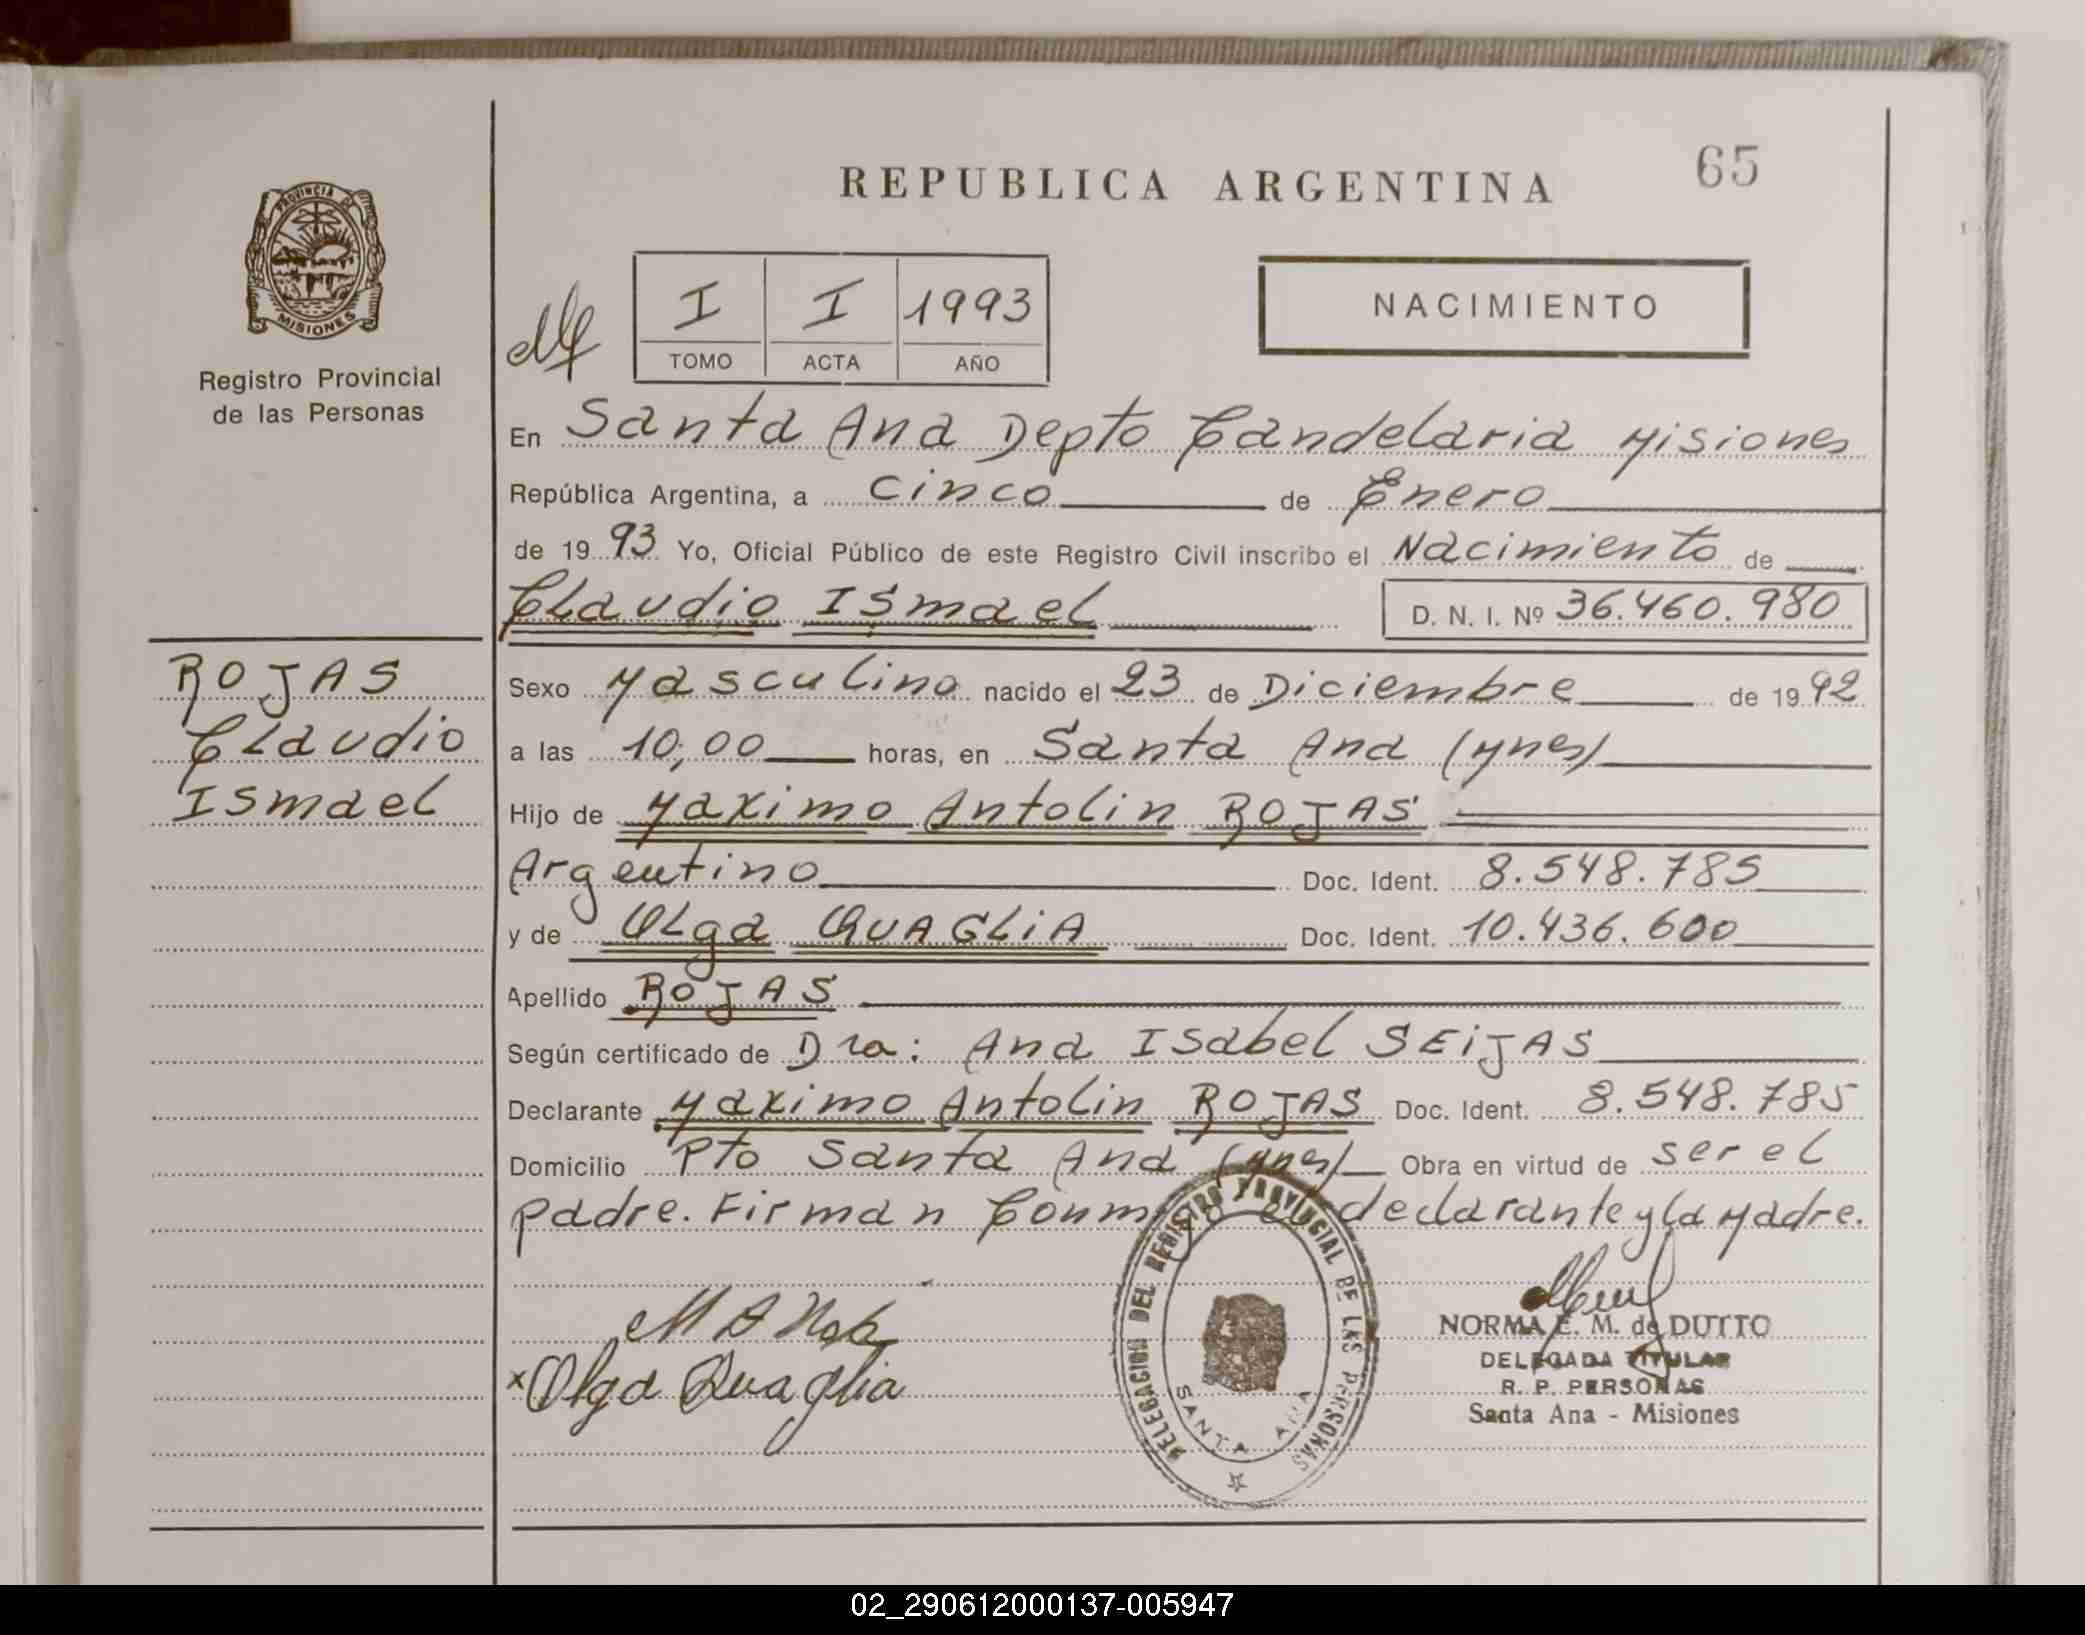 REPUBLICA ARGENTINA
65
PROVINCIA DE
MISIONES
Registro Provincial
de las Personas
I I 1993
TOMO ACTA AÑO
NACIMIENTO
En Santa Ana Depto Candelaria Misiones
República Argentina, a cinco de Enero
de 1993 Yo, Oficial Público de este Registro Civil inscribo el Nacimiento de
Claudio Ismael D. N. I. Nº 36.460.980
ROJAS
Claudio
Ismael
Sexo Masculino nacido el 23 de Diciembre de 1992
a las 10,00 horas, en Santa Ana (Mnes)
Hijo de Maximo Antolin ROJAS
Argentino Doc. Ident. 8.548.785
y de Olga QUAGLIA Doc. Ident. 10.436.600
Apellido ROJAS
Según certificado de Dra: Ana Isabel SEIJAS
Declarante Maximo Antolin ROJAS Doc. Ident. 8.548.785
Domicilio Pto Santa Ana (Mnes) Obra en virtud de ser el
padre. Firman Conmigo el declarante y la Madre.
x Olga Quaglia
DELEGACION DEL REGISTRO PROVINCIAL DE LAS PERSONAS
SANTA ANA
NORMA E. M. de DUTTO
DELEGADA TITULAR
R. P. PERSONAS
Santa Ana - Misiones
02_290612000137-005947